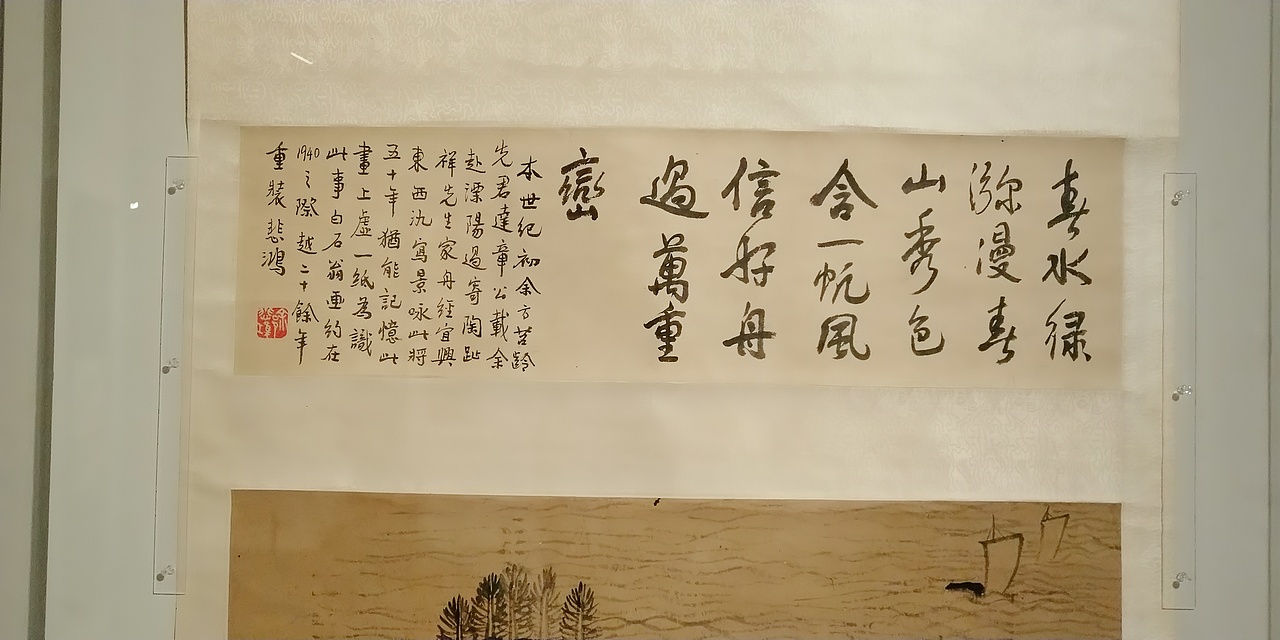 春水綠
瀰漫春
山秀色
含一帆風
信好舟
過萬重
巒
本世紀初余方苕齡
先君達章公載余
赴溧陽過寄陶趾
祥先生家舟經宜興
東西氿寫景咏此將
五十年猶能記憶此
畫上虛一紙為識
此事白石翁画約在
1940之際越二十餘年
重裝悲鴻